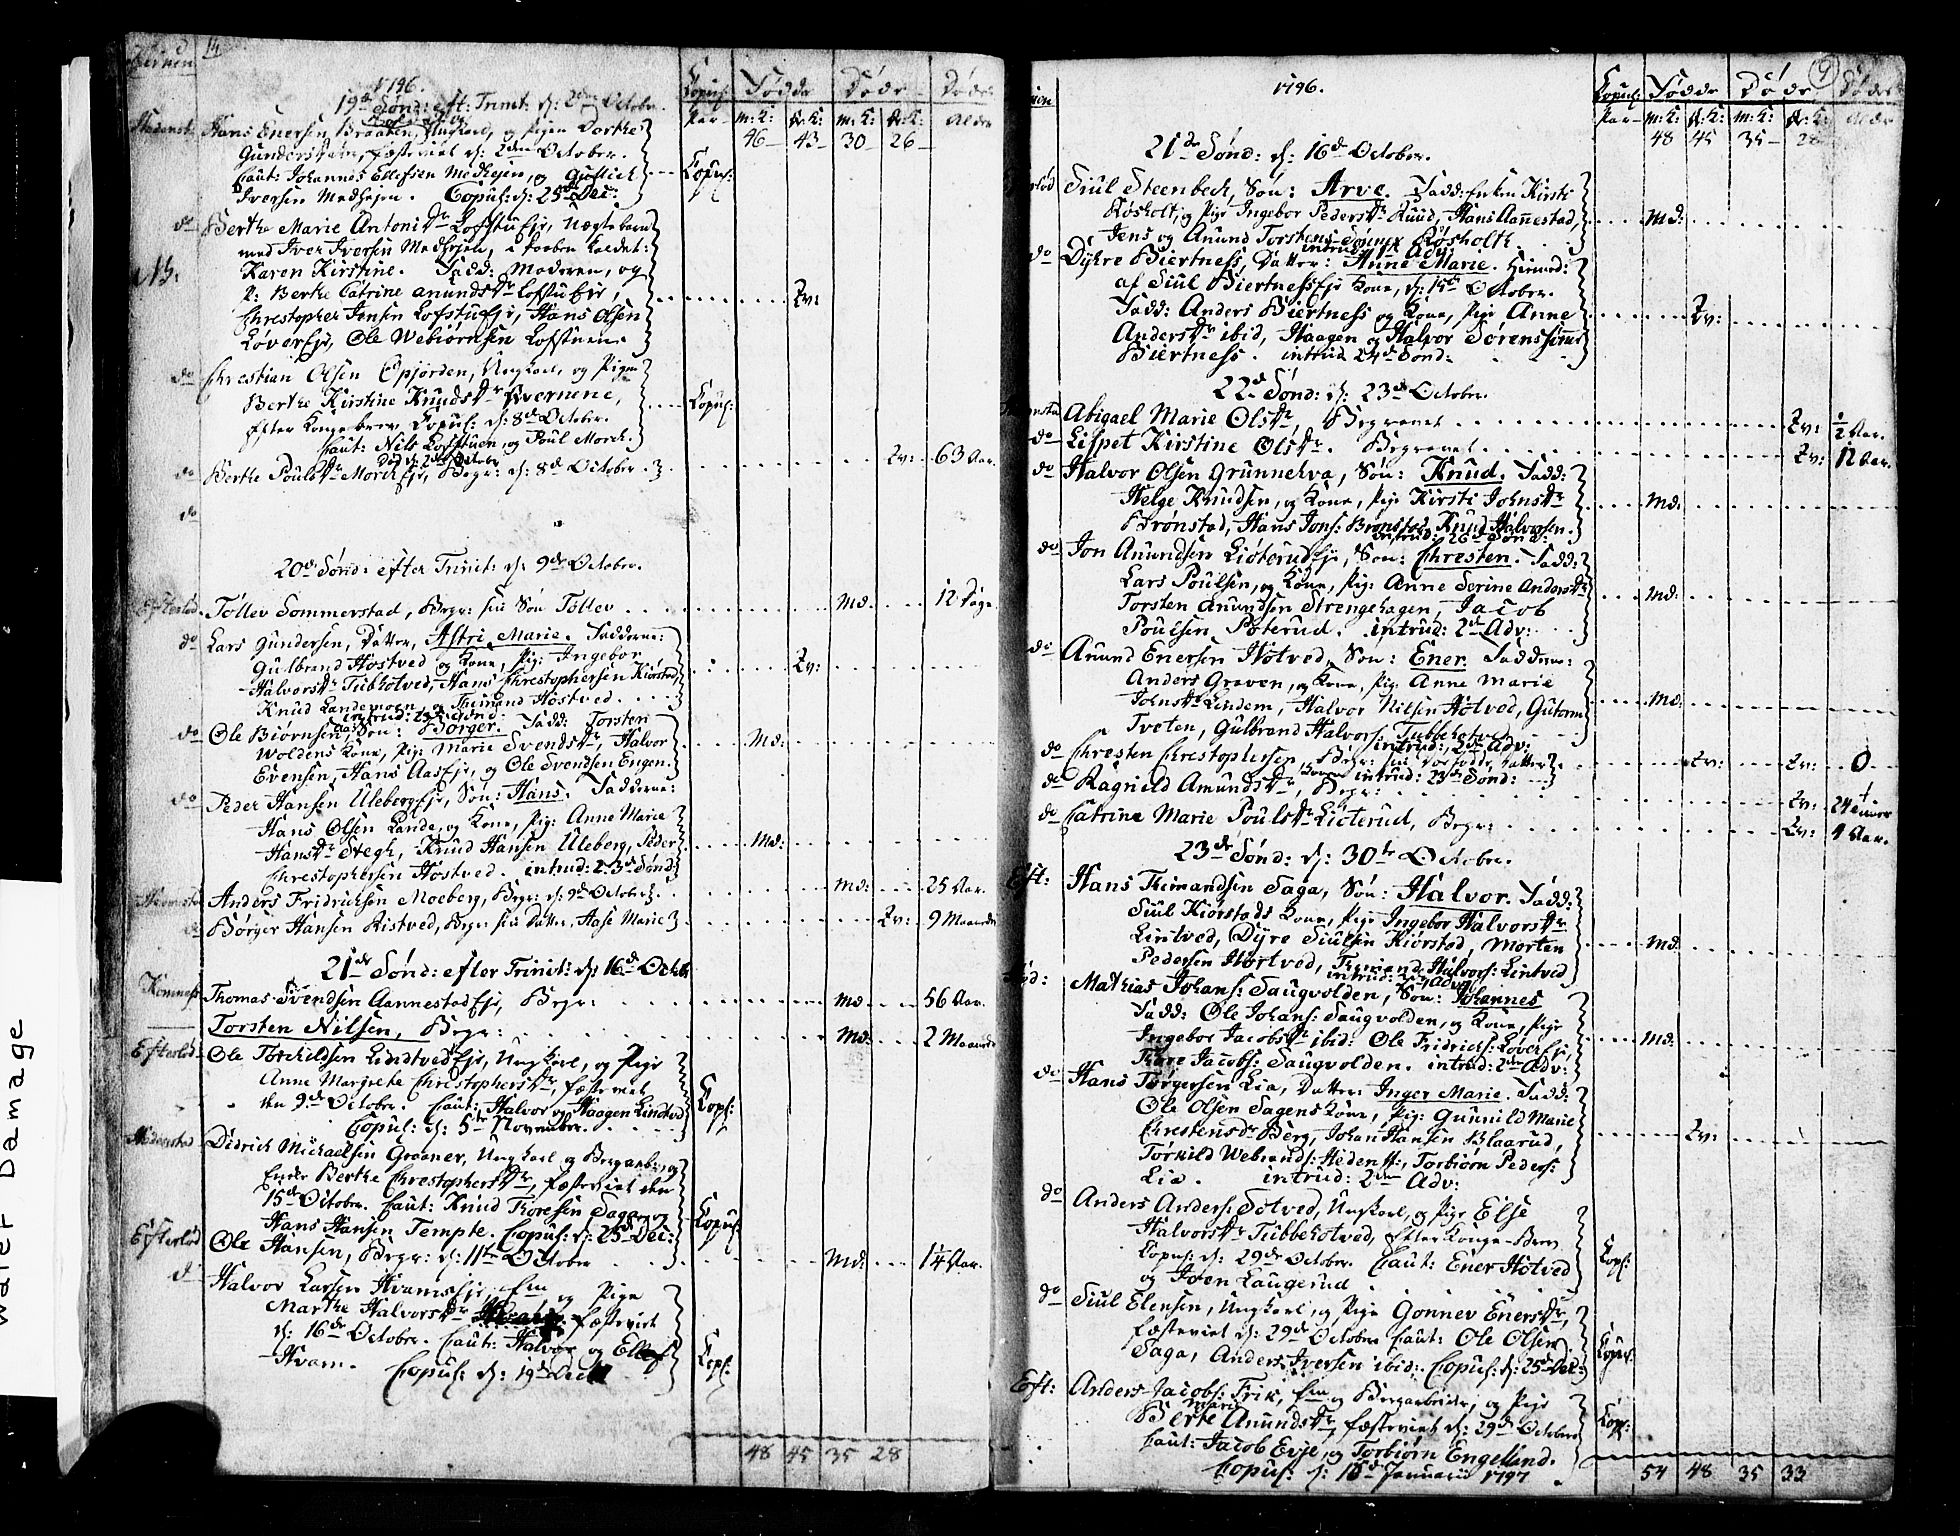 1796.
Copul: Fødde Døde Døde
Par m:K: Qv:K: m:K: Qv:K: Alder
46 43 30 26
19de Sønd: eft: Trinit: d: 2den Octobr.
Hans Enersen Braaten, Ungkarl, og Pigen Dorthe
Gundersdatter, fæsteviet d: 2den October.
Caut: Johannes Ellefsen Medhejen, og Gullich
Iversen Medhejen. Copul: d: 25de Dec: Copul:
do Berthe Marie Antonidr Lofstuejr, Uægte barn
med Iver Iversen Medhejen, i Daaben kaldet:
NB. Karen Kirstine. Fadd: Moderen, og
P: Berthe Catrine Anundsdr Lofstuejr, Qv:
Christopher Jensen Lofstuejr, Hans Olsen
Løverejr, Ole Webiørnsen Lofstuen
do Christian Olsen Opjorden, Ungkarl, og Pigen
Berthe Kirstine Knudsdr Qvernene, Copul:
efter Kongebrev, Copul: d: 8de October.
Caut: Nils Lofstuen, og Poul Morck.
død d: 2den Octobr
do Berthe Poulsdr Morckejr, Begr: d: 8de October. Qv: 63 Aar.
do
20de Sønd: efter Trinit: d: 9de October.
Efterlød Tollev Sommerstad, Begr: sin Søn Tollev M: 12 Dage
do Lars Gundersen, Datter, Astri Marie. Fadderne:
Gulbrand Hostved og Kone, Pig: Ingebor Qv:
Halvorsdr Tubhotved, Hans Christophersen Kiørstad,
Knud Landemoen, og Thimand Hostved.
intrud: 23de Sønd:
do Ole Biørnsen, Søn: Børger. Fadd: Torsten
Woldens Kone, Pig: Marie Svendsdr, Halvor M:
Evensen, Hans Aasejr, og Ole Svendsen Engen.
do Peder Hansen Ulebergejr, Søn: Hans. Fadderne:
Hans Olsen Lande, og Kone, Pig: Anne Marie
Hansdr Stegh, Knud Hansen Uleberg, Peder M:
Christophersen Hostved. intrud: 23de Sønd:
Anders Fridrichsen Moeberg, Begr: d: 9de October M: 25 Aar.
Børger Hansen Ristved, Begr: sin Datter, Aase Marie Qv: 9 Maaneder
21de Sønd: efter Trinit: d: 16de Octobr
Komnes Thomas Svendsen Aannestadejr, Begr: M: 56 Aar.
Torsten Nilsen, Begr: M: 2 Maaneder
Efterlød Ole Torchildsen Lindtvedejr, Ungkarl, og Pige
Anne Margrethe Christophersdr, fæsteviet
den 9de October. Caut: Halvor og Haagen Lindtved Copl:
Copul: d: 5te November.
Hedenstad Didrich Michaelsen Graaner, Ungkarl og Bergarb:, og
Enke Berthe Christophersdr, fæsteviet den
15de October. Caut: Knud Thoresen Saga, og
Hans Hansen Tempte. Copul: d: 25de Dec: Copul:
Efterlød Ole Hansen, Begr: d: 11te October M: 1/4 Aar.
do Halvor Larsen Hvamsejr, og Pige
Marthe Halvorsdr fæsteviet
d: 16de October. Caut: Halvor og Ellef
Hvam. Copul: d: 19de Dec Copl:
48 45 35 28
1796. 9
Copul: Fødde Døde Døde
Par m:K: Qv:K: m:K: Qv:K: Alder
48 45 35 28
21de Sønd: d: 16de October.
Siul Steenbech, Søn: Arve. Fadd: Enken Kirsti
Røsholt, og Pige Ingebor Pedersdr Ruud, Hans Aannestad, M:
Jens og Anund Torstens Sønner Røsholt.
intrud: 1 Adv:
do Dyhre Biertness, Datter: Anne Marie. Hiemed:
af Siul Biertnessejr Kone, d: 15de October.
Fadd: Anders Biertness og Kone, Pige Anne Qv:
Andersdr ibid, Haagen og Halvor Sørenssønner
Biertness. intrud 24de Sønd:
22de Sønd: d: 23de October.
Abigael Marie Olsdr, Begravet Qv: 1/2 Aar.
do Lispet Kirstine Olsdr. Begravet Qv: 12 Aar.
do Halvor Olsen Grunnehva, Søn: Knud. Fadd:
Helge Knudsen, og Kone, Pige Kirsti Johnsdr M:
Brønstad, Hans Jons: Brønstad, Knud Halvorsen.
intrud: 26de Sønd:
do Jon Anundsen Liøterudejr, Søn: Christen. Fadd:
Lars Poulsen, og Kone, Pig: Anne Serine Andersdr M:
Torsten Anundsen Strengehagen, Jacob
Poulsen Poterud. intrud: 2de Adv:
do Anund Enersen Hotved, Søn: Ener. Fadderne:
Anders Graven, og Kone, Pig: Anne Marie
Johnsdr Lindem, Halvor Nilsen Hotved, Gutorm M:
Tveten, Gulbrand Halvors: Tubbehotved
intrud: 2de Adv:
do Christen Christophersen, Begr: sin Dødfødde Datter Qv: Qv: 0
Konen intrud: 23de Sønd:
do Ragnild Amundsdr, Begr: Qv: 24 timer
do Catrine Marie Poulsdr Lioterud, Begr: Qv: 4 Aar.
23de Sønd: d: 30te October.
Eft: Hans Thimandsen Saga, Søn: Halvor. Fadd:
Siul Kiørstads Kone, Pige Ingebor Halvorsdr
Lintved, Dyre Siulsen Kiørstad, Morten M:
Pedersen Hørtved, Thimand Halvors: Lintved
Mathias Johans: Saugvolden, Søn: Johannes
Fadd: Ole Johans: Saugvolden, og Kone, Pige
Ingebor Jacobsdr ibid: Ole Fridrichs: Løverejr, M:
Thore Jacobs: Saugvolden. intrud: 2den Adv:
do Hans Torgersen Lia, Datter: Inger Marie. Fadd:
Ole Olsen Sagens Kone, Pig: Gunnild Marie
Christensdr Berg, Johan Hansen Blaarud, Qv:
Torkild Webrands: Hedenst:, Torbiørn Peders:
Lia. intrud: 2den Adv:
do Anders Anders: Sotved, Ungkarl, og Pige Else
Halvorsdr Tubbehotved, efter Konge-Brev
Copul: d: 29de October. Caut: Ener Hotved Copl:
og Joen Laugerud
do Siul Elensen, Ungkarl, og Pige Gonnev Enersdr,
fæsteviet d: 29de October. Caut: Ole Olsen
Saga, Anders Iversen ibid:. Copul: d: 25de Dec: Copul:
Eft: Anders Jacobs: Frik, og Bergarbeider, og Pige
Berte Marie Anundsdr, fæsteviet d: 29de October Copl:
Caut: Jacob Evje, og Torbiørn Engelland.
Copul: d: 15de Januarii 1797.
54 48 35 33
Water Damage